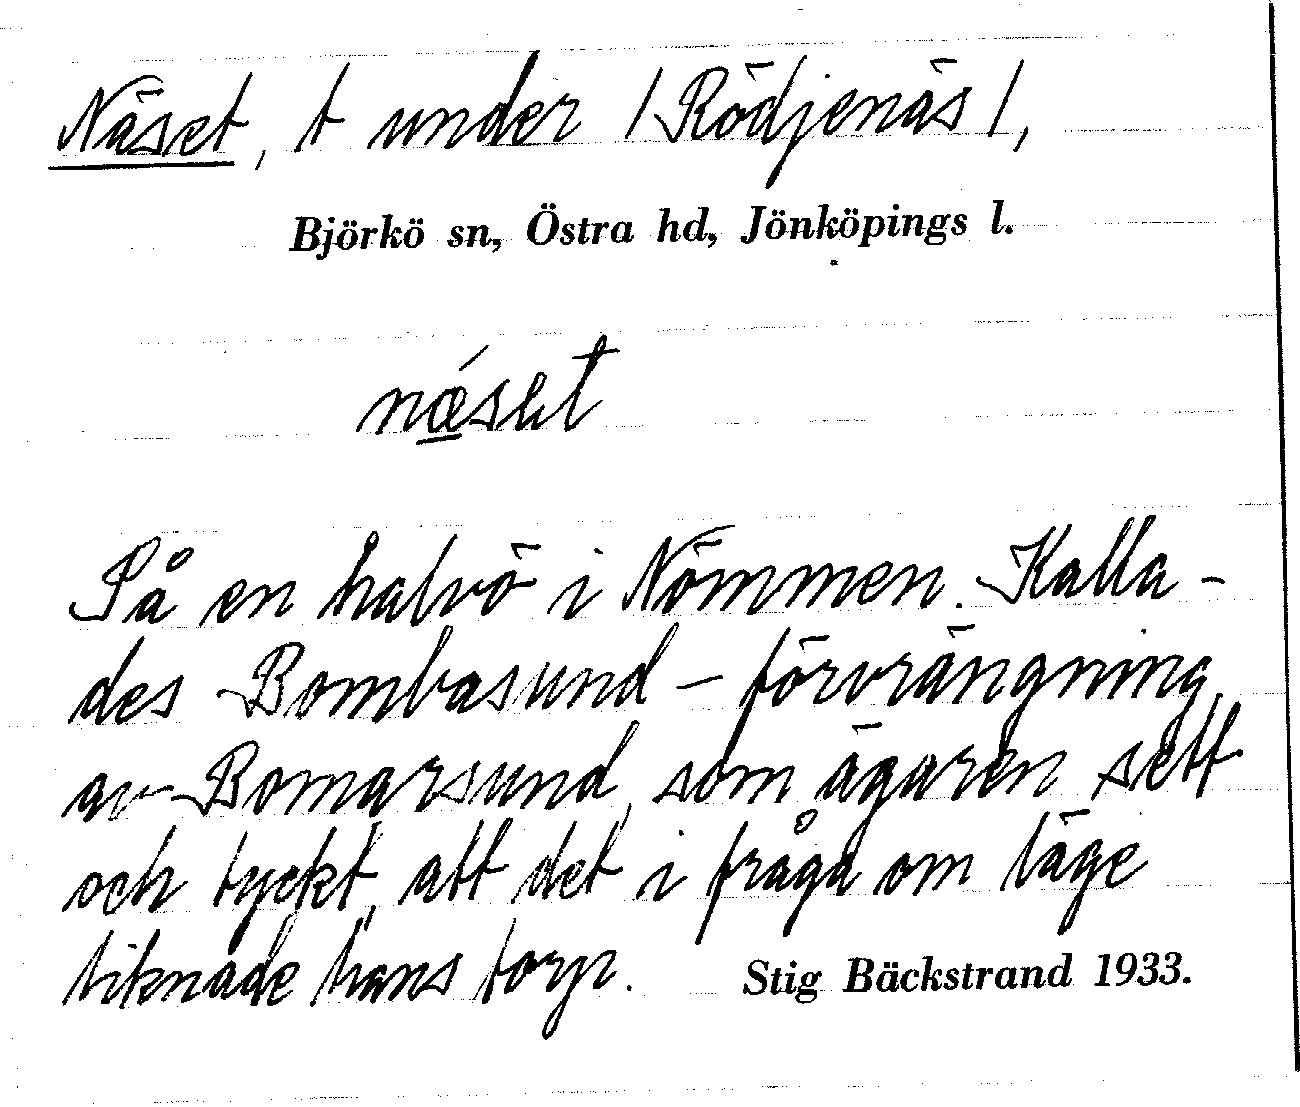 Näset, t under /Rödjenäs/,
Björkö sn, Östra hd, Jönköpings l.
På en halvö i Nömmen. Kalla-
des Bombasund – förvrängning
av Bomarsund, som ägaren sett
och tyckt, att det i fråga om läge
liknade hans torp. Stig Bäckstrand 1933.